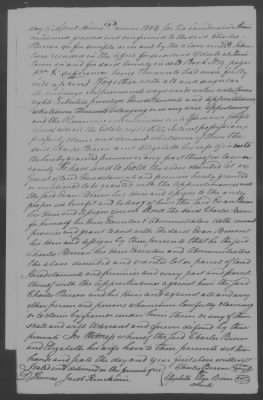 day of April Anno Domini 1804 for the consideration therein
mentioned granted and confirmed to the said Charles
Brown in fee simple as in and by the above recited Inden-
ture recorded in the office for recording of deeds at
town in and for said County in deed Book
page &c. reference being thereunto had more fully
will appear Together with all and singular
the buildings improvements ways woods waters watercourses
rights liberties privileges hereditaments and appurtenances
whatsoever thereunto belonging or in any wise appertaining
and the Reversions and remainders rents issues and profits
thereof and all the estate right title interest property
property claim and demand whatsoever of them the
said Charles Brown and Elizabeth his wife of in and to
the hereby granted premises or any part thereof in law or
equity To have and to hold the above described lot or
parcel of land hereditaments and premises hereby granted
or mentioned to be granted with the appurtenances unto
the said Evan Brown his heirs and assigns to the only
proper use benefit and behoof of him the said Evan Brown
his heirs and assigns forever And the said Charles Brown
for himself his heirs Executors & administrators doth covenant
promise and grant to and with the said Evan Brown
his heirs and assigns by these presents that he the said
Charles Brown his heirs Executors and administrators
the above described and granted lot or parcel of land
hereditaments and premises and every part and parcel
thereof with the appurtenances against him the said
Charles Brown and his heirs and against all and every
other person and persons whomsoever lawfully claiming
or to claim by from or under him them or any of them
shall and will Warrant and forever defend by these
presents In Witness whereof the said Charles Brown
and Elizabeth his wife have to these presents set their
hands and seals the day and year first above written
Sealed and delivered in the presence of us
Charles Brown
Thomas
Jacob
Elizabeth Brown
mark